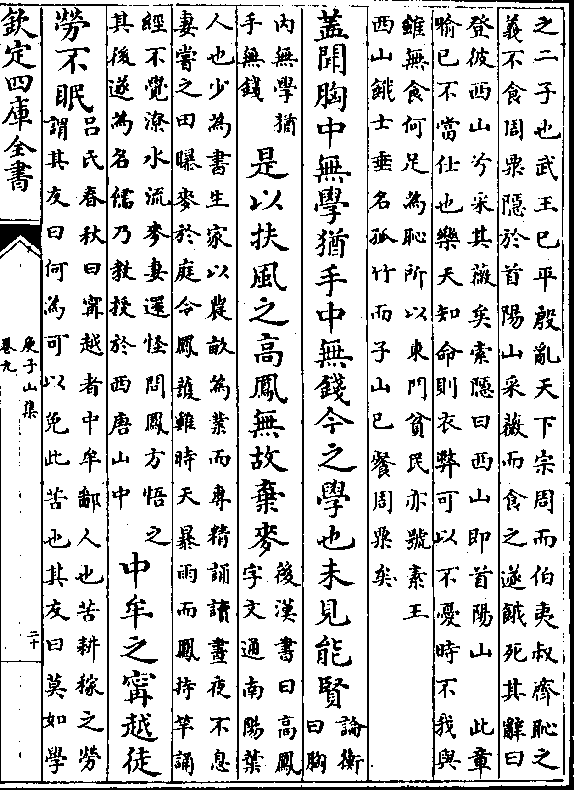 之二子也武王已平殷亂天下宗周而伯夷叔齊恥之
義不食周粟隱於首陽山采薇而食之遂餓死其辭曰
登彼西山兮采其薇矣索隱曰西山即首陽山　此章
喻已不當仕也樂天知命則衣弊可以不憂時不我與
雖無食何足為恥所以東門貧民亦號素王
西山餓士垂名孤竹而子山已餐周粟矣
蓋聞胸中無學猶手中無錢今之學也未見能賢
論衡
曰胸
内無學猶
手無錢
是以扶風之高鳳無故棄麥
後漢書曰高鳳
字文通南陽葉
人也少為書生家以農畝為業而專精誦讀晝夜不息
妻嘗之田曝麥於庭令鳳護雞時天暴雨而鳳持竿誦
經不覺潦水流麥妻還怪問鳳方悟之
其後遂為名儒乃教授於西唐山中
中牟之甯越徒
勞不眠
呂氏春秋曰甯越者中牟鄙人也苦耕稼之勞
謂其友曰何為可以免此苦也其友曰莫如學
欽定四庫全書
庾子山集
卷九
二十